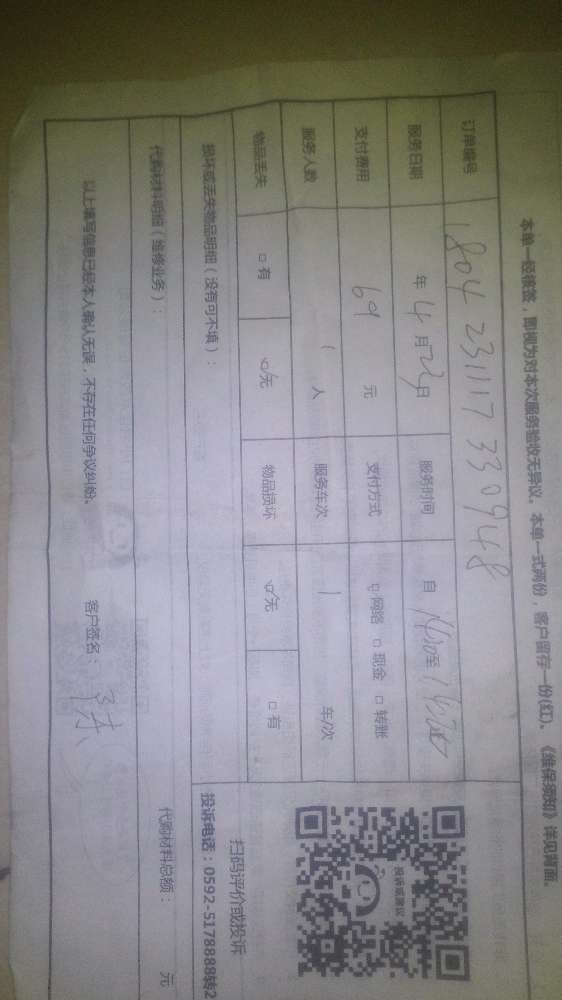 本单一经核签，即视为对本次服务验收无异议。本单一式两份，客户留存一份(红)。《维保须知》详见背面。
订单编号 1804 231117 330948
服务日期 年 4 月 23 日 服务时间 自 至
支付费用 69 元 支付方式 □ 网络 □ 现金 □ 转账
服务人数 1 人 服务车次 1 车/次
物品丢失 □ 有 ☑ 无 物品损坏 ☑ 无 □ 有
损坏或丢失物品明细（没有可不填）：
代购材料明细（维修业务）： 代购材料总额： 元
以上填写信息已经本人确认无误，不存在任何争议纠纷。 客户签名：
投诉或建议
扫码评价或投诉
投诉电话：0592-5178888转2